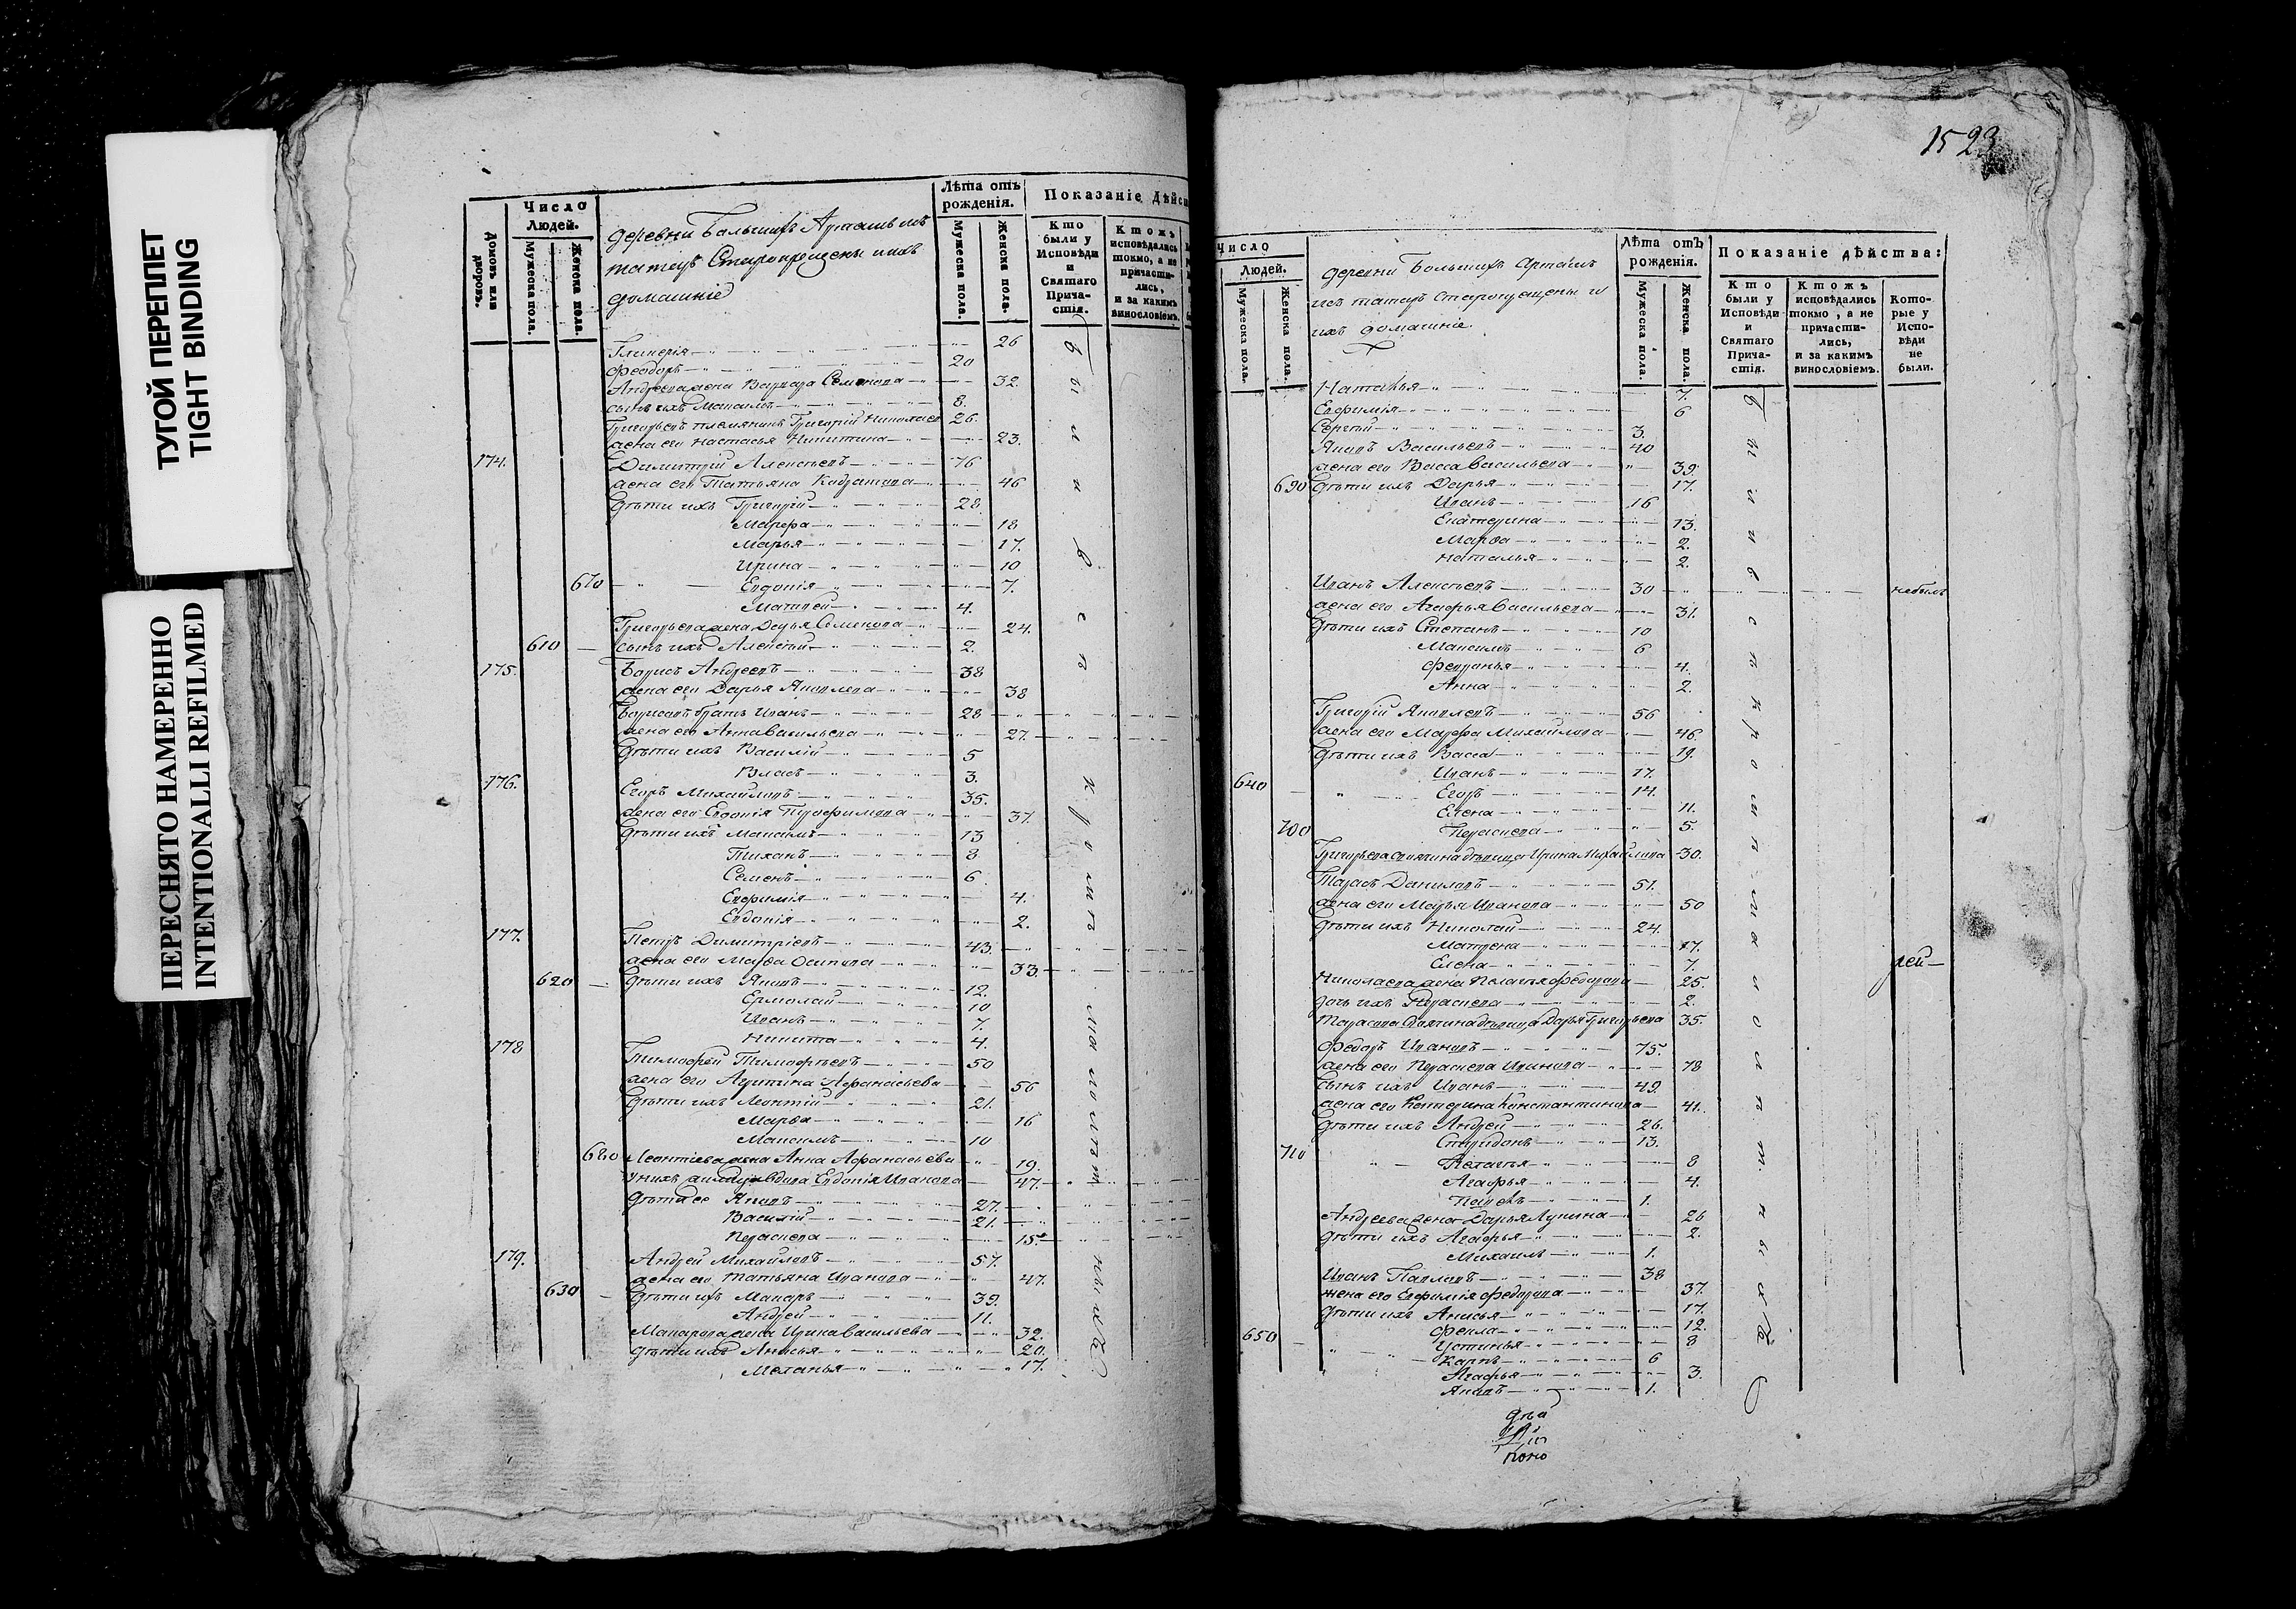 ТУГОЙ ПЕРЕПЛЕТ
TIGHT BINDING
ПЕРЕСНЯТО НАМЕРЕННО
INTENTIONALLI REFILMED
Домовъ или дворовъ.
Число Людей.
Мужеска пола.
Женска пола.
деревни Большихъ Арташъ изъ
татаръ Старокрещены и ихъ
домашніе
Лѣта отъ рожденія.
Мужеска пола.
Женска пола.
Показаніе дѣйс
Кто были у Исповѣди и Святаго Причастія.
Ктожъ исповѣдались токмо, а не причастились, и за какимъ винословіемъ.
Гликерія 26
Феодоръ 20
Андреева жена Варвара Семенова 32.
сынъ ихъ Максимъ 8.
Григорьевъ племянникъ Григорій Николаевъ 26.
жена его Настасья Никитина 23.
174. Димитрій Алексѣевъ 76
жена его Татьяна 46
дѣти ихъ Григорій 28
Марфа 18
Марья 17.
Ирина 10
670 Евдокія 7.
Матвей 4.
Григорьева жена Дарья Семенова 24.
610 сынъ ихъ Алексѣй 2.
175. Борисъ Андреевъ 38
жена его Дарья Яковлева 38
Борисовъ братъ Иванъ 28
жена его Анна Васильева 27.
дѣти ихъ Василій 5
Власъ 3.
176. Егоръ Михайловъ 35.
жена его Евдокія Трофимова 37.
дѣти ихъ Максимъ 13
Тиханъ 8
Семенъ 6
Евфимія 4.
Евдокія 2.
177. Петръ Димитріевъ 43.
жена его Марѳа Осипова 33.
620 дѣти ихъ Яковъ 12.
Ермолай 10
Иванъ 7.
Никита 4.
178 Тимофей Тимофѣевъ 50
жена его Акулина Афанасьева 56
дѣти ихъ Леонтій 21.
Марѳа 16
Максимъ 10
680 Леонтіева жена Анна Афанасьева 19.
У нихъ вдова Евдокія Иванова 47.
дѣти ее Яковъ 27.
Василій 21.
Параскева 15.
179. Андрей Михайловъ 57.
жена его Татьяна Иванова 47.
630 дѣти ихъ Макаръ 39.
Андрей 11.
Макарова жена Ирина Васильева 32.
дѣти ихъ Анисья 20.
Меланья 17.
1523
Число Людей.
Мужеска пола.
Женска пола.
деревни Большихъ Арташъ
изъ татаръ Старокрещены и
ихъ домашніе.
Лѣта отъ рожденія.
Мужеска пола.
Женска пола.
Показаніе дѣйства:
Кто были у Исповѣди и Святаго Причастія.
Ктожъ исповѣдались токмо, а не причастились, и за какимъ винословіемъ.
Которые у Исповѣди не были.
Наталья 7.
Евфимія 6
Сергѣй 3.
Яковъ Васильевъ 40
жена его Васса Васильева 39.
690 дѣти ихъ Дарья 17.
Иванъ 16
Екатерина 13.
Марѳа 2.
Наталья 2.
Иванъ Алексѣевъ 30 небылъ
жена его Агафья Васильева 31.
дѣти ихъ Степанъ 10
Максимъ 6
Февронья 4.
Анна 2.
Григорій Яковлевъ 56
жена его Марфа Михайлова 46
дѣти ихъ Васса 19.
Иванъ 17.
640 Егоръ 14.
Елена 11.
700 Параскева 5.
Григорьева своячина дѣвица Ирина Михайлова 30.
Тарасъ Даниловъ 51.
жена его Марья Иванова 50
дѣти ихъ Николай 24.
Матрена 17.
Елена 7.
Николаева жена Пелагея Федорова 25.
дочь ихъ Параскева 2.
Тарасова своячина дѣвица Дарья Григорьева 35.
Федоръ Ивановъ 75.
жена его Параскева 78
сынъ ихъ Иванъ 49.
жена его Катерина Константинова 41.
дѣти ихъ Андрей 26.
Спиридонъ 13.
710 Пелагея 8
Агафья 4.
1.
Андреева жена Дарья Лукина 26
дѣти ихъ Агафья 2
Михаилъ 1.
Иванъ Павловъ 38
жена его Евфимія Федорова 37.
дѣти ихъ Анисья 17.
Фекла 12.
650 Устинья 8
Карпъ 6
Агафья 3.
Яковъ 1.